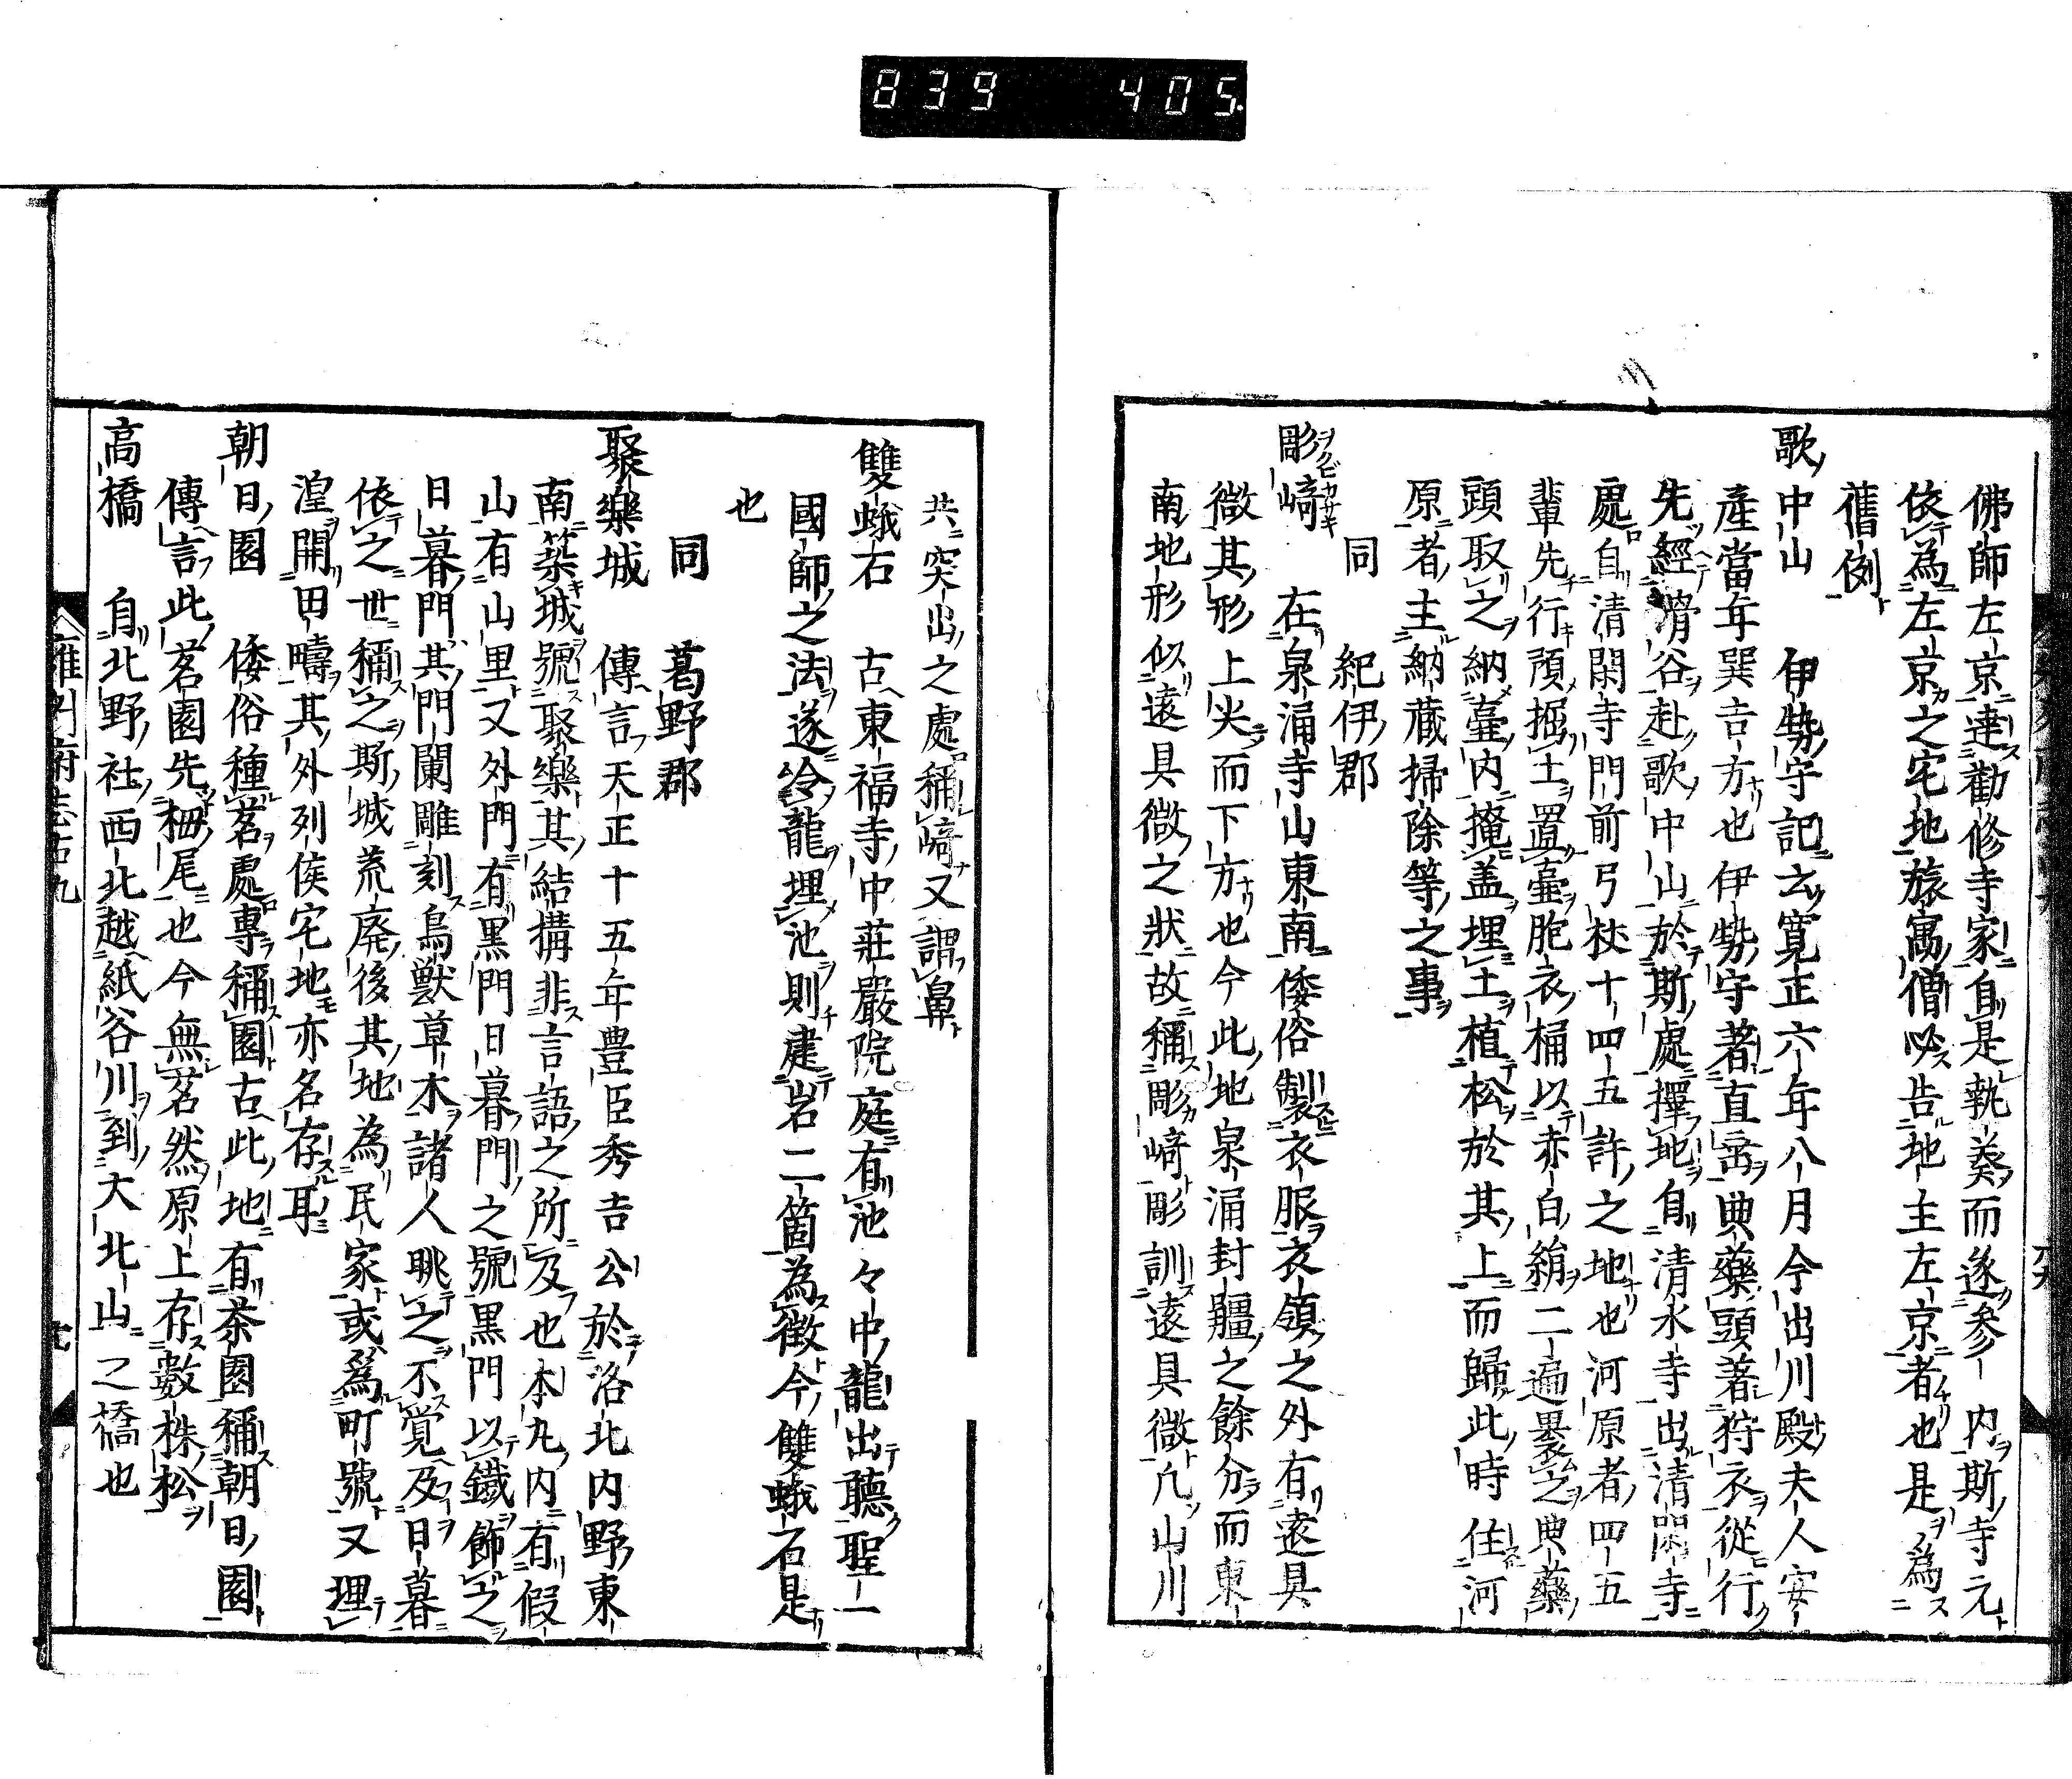 839 405
佛師左京達勸修寺家自是執奏而遂参内斯寺元
依為左京之宅地旅寓僧必告地主左京者也是為
舊例
歌中山 伊勢守記云寛正六年八月今出川殿夫人安
產當年巽吉方也伊勢守著直垂典藥頭著狩衣從行
先經滑谷赴歌中山於斯處擇地自清水寺出清閑寺
處自清閑寺門前弓杖十四五許之地也河原者四五
輩先行預掘土置臺胞衣桶以赤白絹二遍裹之典藥
頭取之納臺内掩盖埋土植松於其上而歸此時住河
原者主納藏掃除等之事
同 紀伊郡
彫﨑 在泉涌寺山東南倭俗製衣服衣領之外有遠具
微其形上尖而下方也今此地泉涌封疆之餘分而東
南地形似遠具微之狀故稱彫﨑彫訓遠具微凢山川
共突出之處稱﨑又謂鼻
雙蛾石 古東福寺中莊嚴院庭有池々中龍出聽聖一
國師之法遂令龍埋池則建岩二箇為徴今雙蛾石是
也
同 葛野郡
聚樂城 傳言天正十五年豊臣秀吉公於洛北内野東
南築城號聚樂其結構非言語之所及也本丸内有假
山有山里又外門有黑門日暮門之號黑門以鐵飾之
日暮門其門闌雕刻鳥獸草木諸人眺之不覚及日暮
依之世稱之斯城荒廃後其地為民家或爲町號又埋
湟開田疇其外列侯宅地亦名存耳
朝日園 倭俗種茗處專稱園古此地有茶園稱朝日園
傳言此茗園先栂尾也今無茗然原上存數株松
高橋 自北野社西北越紙谷川到大北山之橋也
雍州府志古九